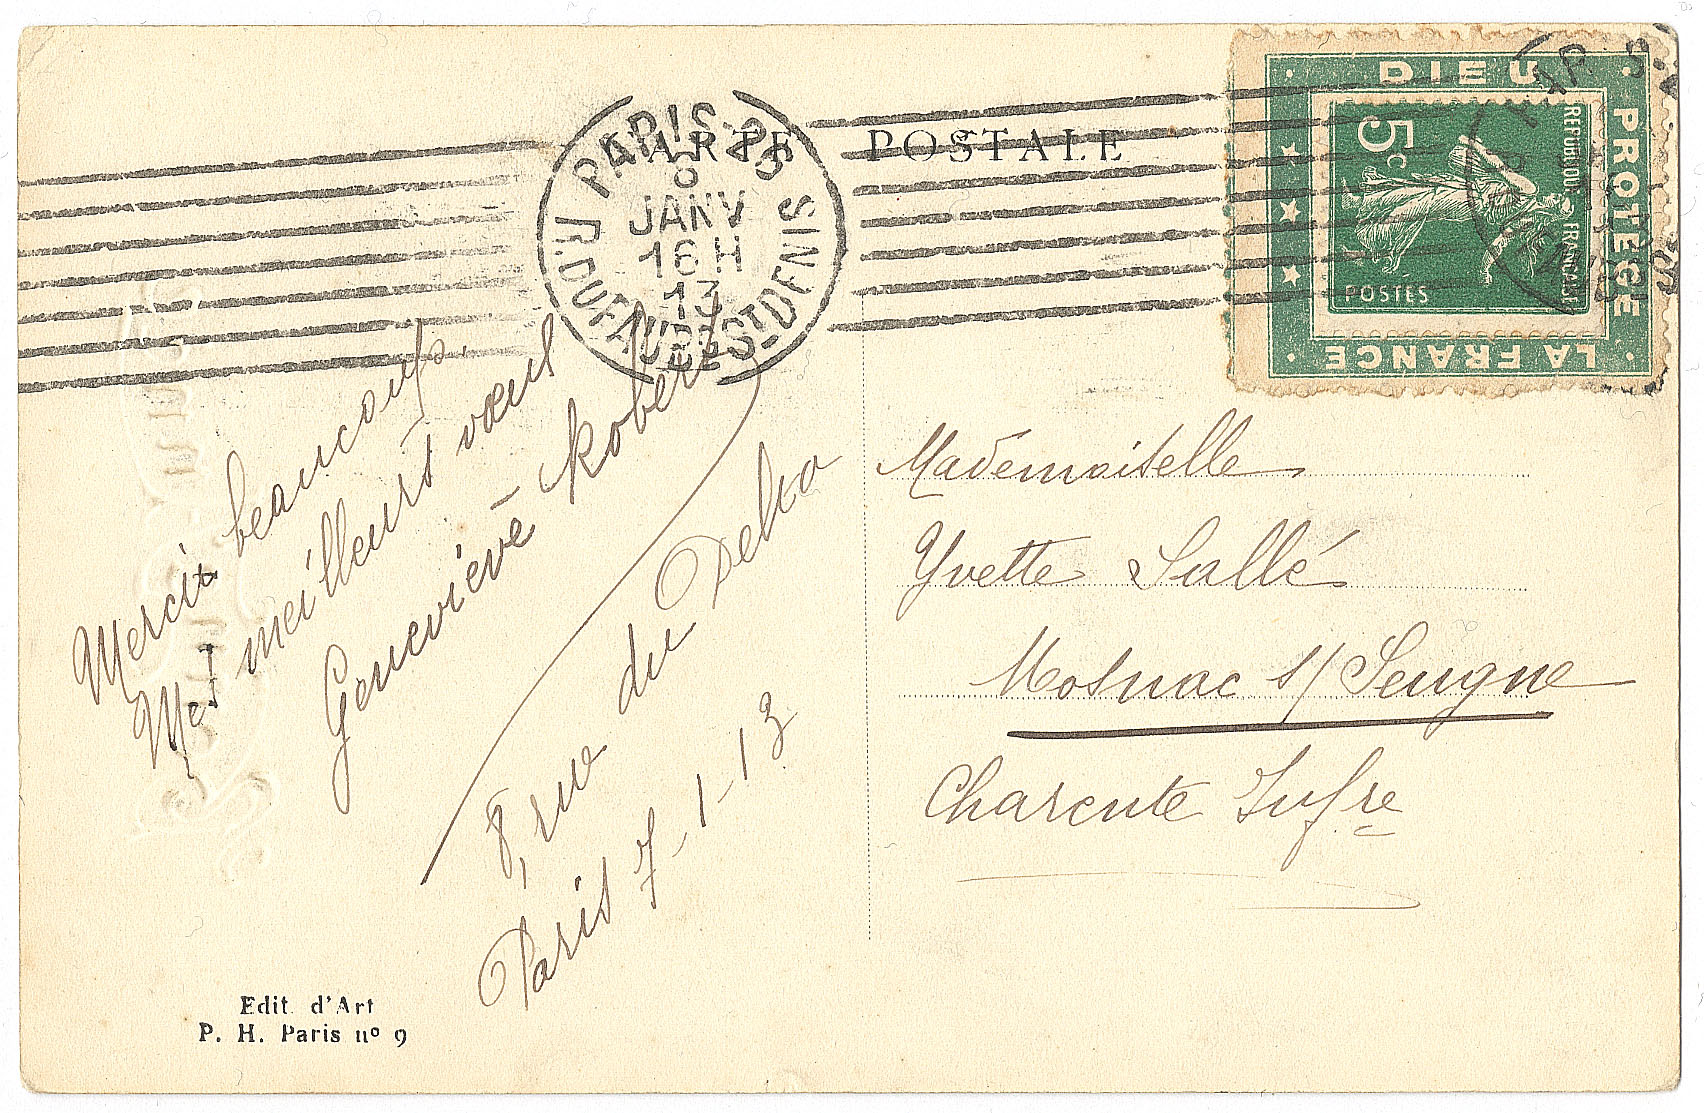 CARTE POSTALE
PARIS-25
8
JANV
16 H
13
R. DU FAUBG ST DENIS
DIEU
PROTÈGE
LA FRANCE
5c
REPUBLIQUE FRANÇAISE
POSTES
Merci beaucoup.
Mes meilleurs vœux
Geneviève Robert
8, rue du Delta
Paris 7-1-13
Mademoiselle
Yvette Sallé
Mosnac s/ Seugne
Charente Infre
Edit. d'Art
P. H. Paris nº 9